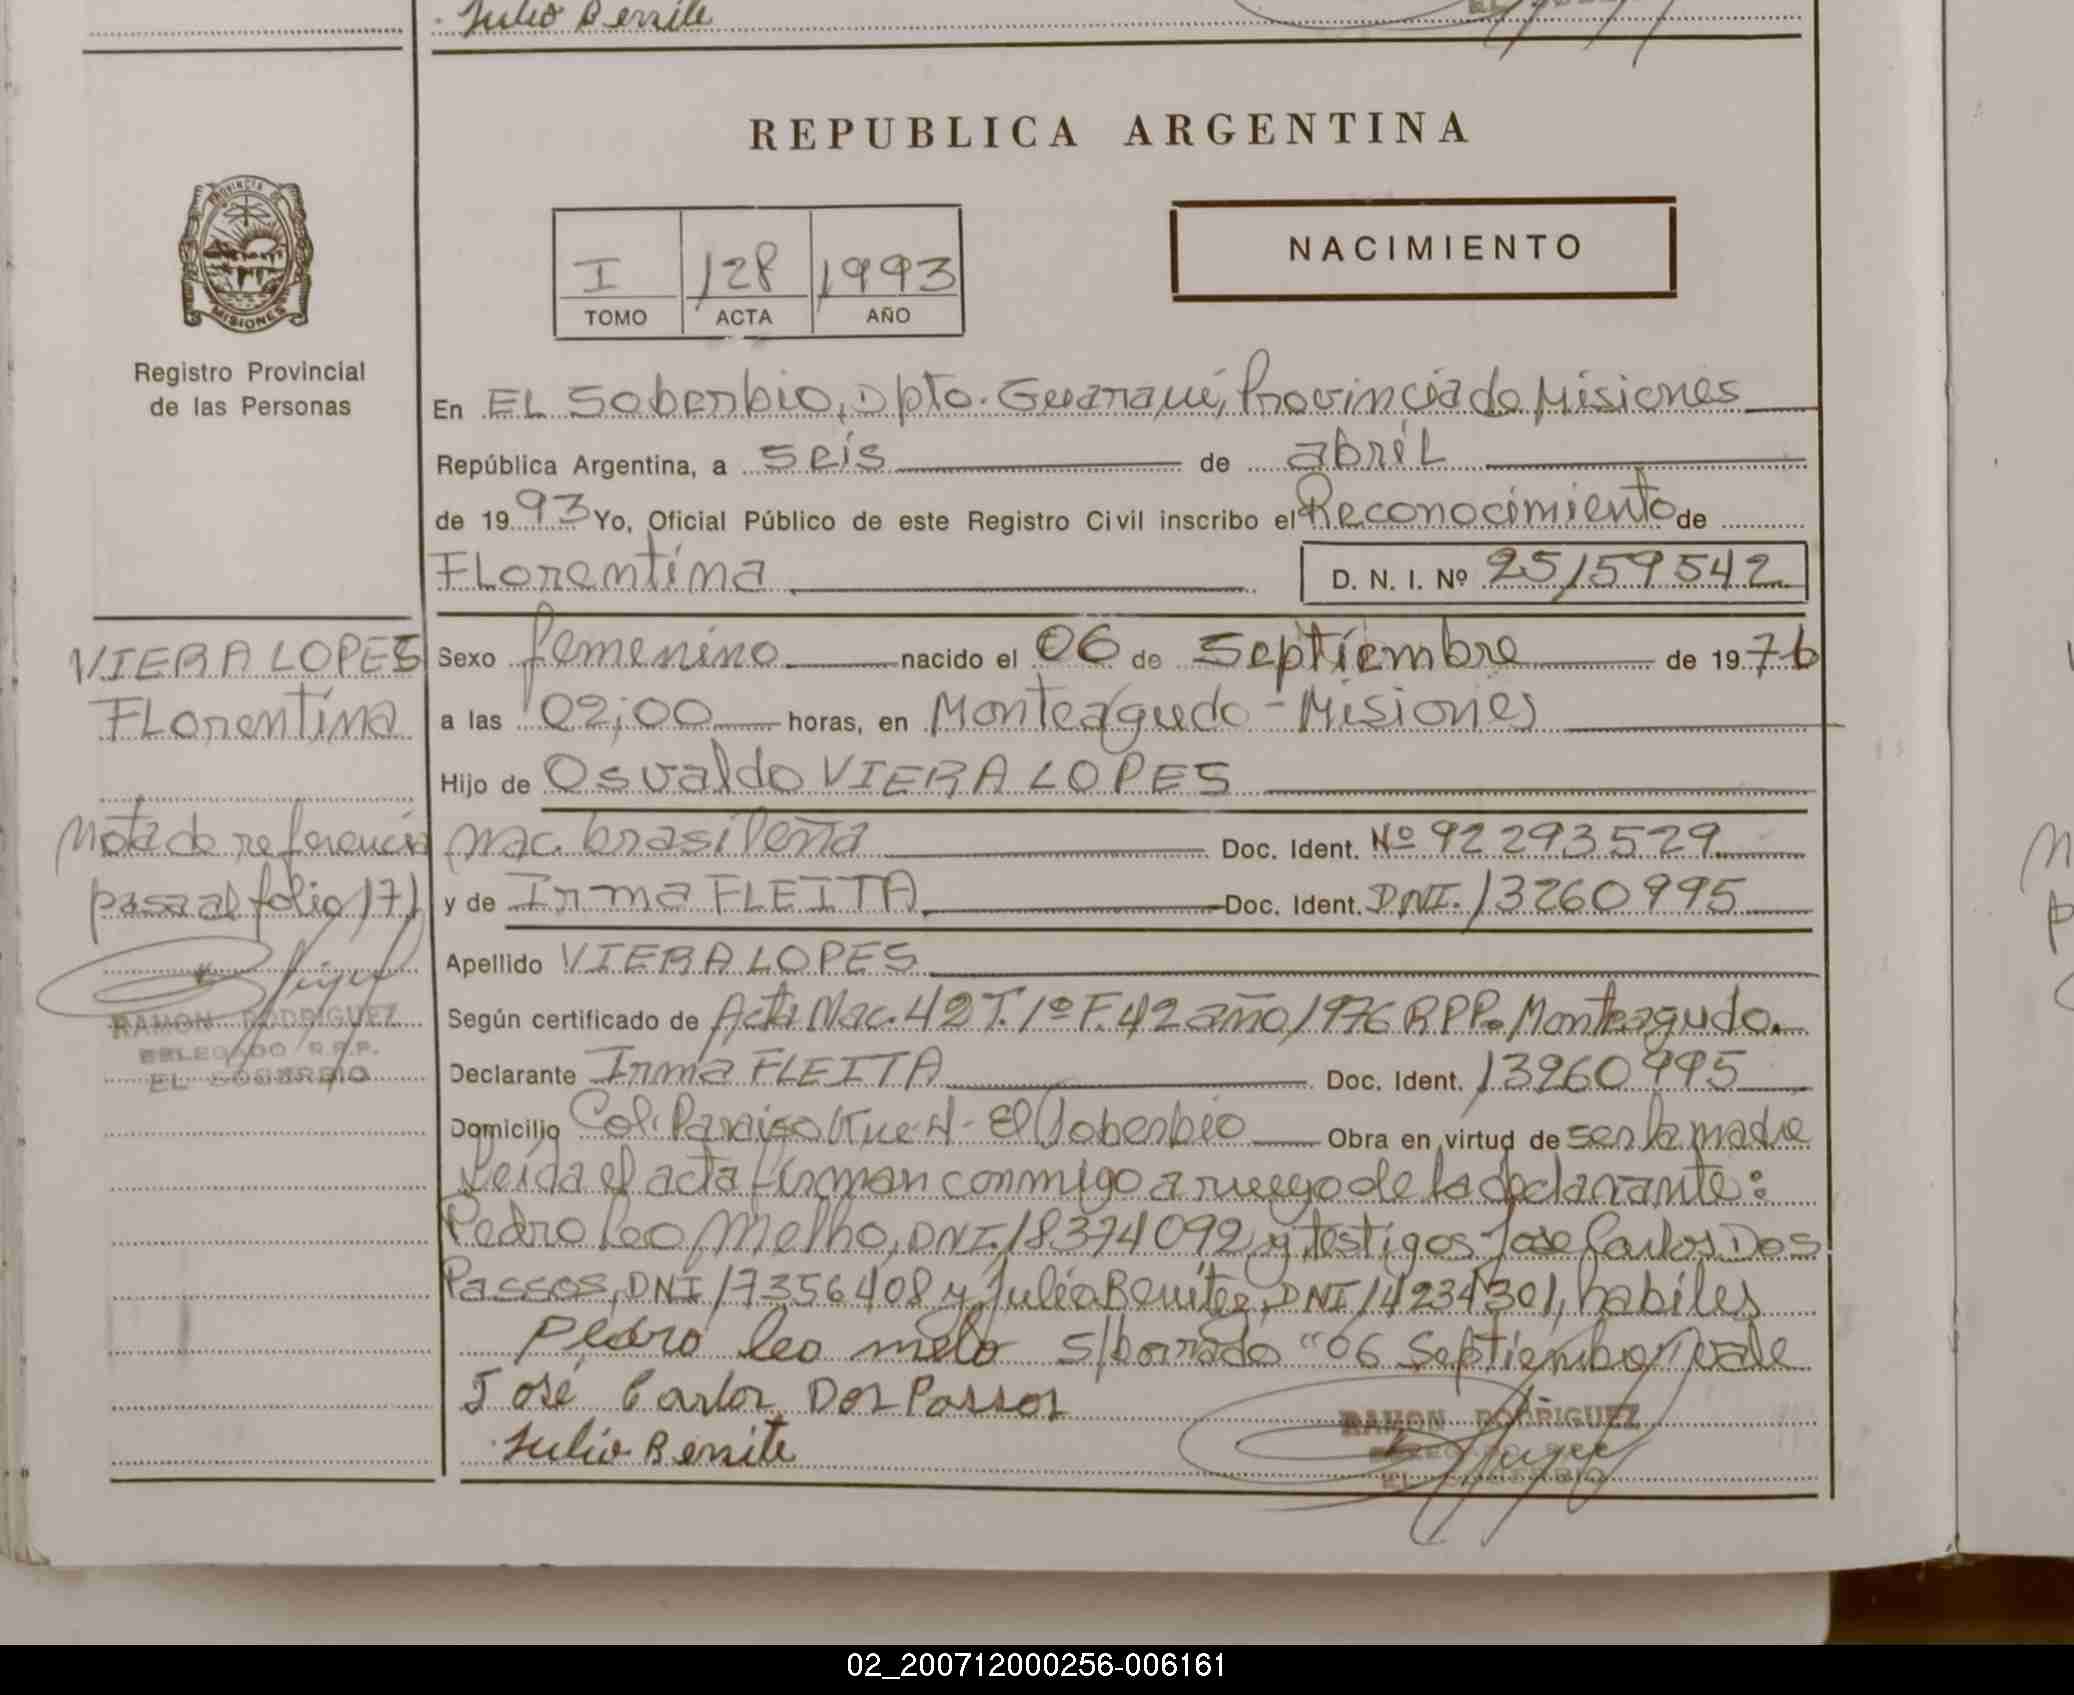 Julio Benite
REPUBLICA ARGENTINA
PROVINCIA DE
MISIONES
Registro Provincial
de las Personas
I 128 1993
TOMO ACTA AÑO
NACIMIENTO
En EL Soberbio, Dpto. Guaraní, Provincia de Misiones
República Argentina, a seis de abril
de 1993 Yo, Oficial Público de este Registro Civil inscribo el Reconocimiento de
Florentina D. N. I. Nº 25159542
VIERA LOPES
Florentina
Nota de referencia
pasa al folio 171
RAMON RODRIGUEZ
DELEGADO R.P.P.
EL SOBERBIO
Sexo femenino nacido el 06 de Septiembre de 1976
a las 02:00 horas, en Monteagudo - Misiones
Hijo de Osvaldo VIERA LOPES
nac. brasileña Doc. Ident. Nº 92293529
y de Irma FLEITA Doc. Ident. DNI. 13260995
Apellido VIERA LOPES
Según certificado de Acta Nac. 42 T. 1º F. 42 año 1976 RPP. Monteagudo.
Declarante Irma FLEITA Doc. Ident. 13260995
Domicilio Col. Paraiso - El Soberbio Obra en virtud de ser la madre
Leida el acta firman conmigo a ruego de la declarante:
Pedro Leo Melho, DNI. 18374092 y testigos Jose Carlos Dos
Passos, DNI 17356408 y Julio Benitez, DNI 14234301, habiles
Pedro leo melo S/borrado "06 Septiembre" vale
José Carlos Dos Passos
Julio Benite
RAMON RODRIGUEZ
DELEGADO R.P.P.
EL SOBERBIO
02_200712000256-006161